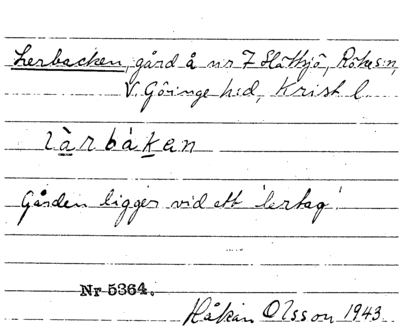 Lerbacken, gård å nr 7 Slättsjö, Röke s:n,
V. Göinge h:d, Krist l
làrbákan
Gården ligger vid ett 'lertag'.
Nr 5364.
Håkan Olsson 1943